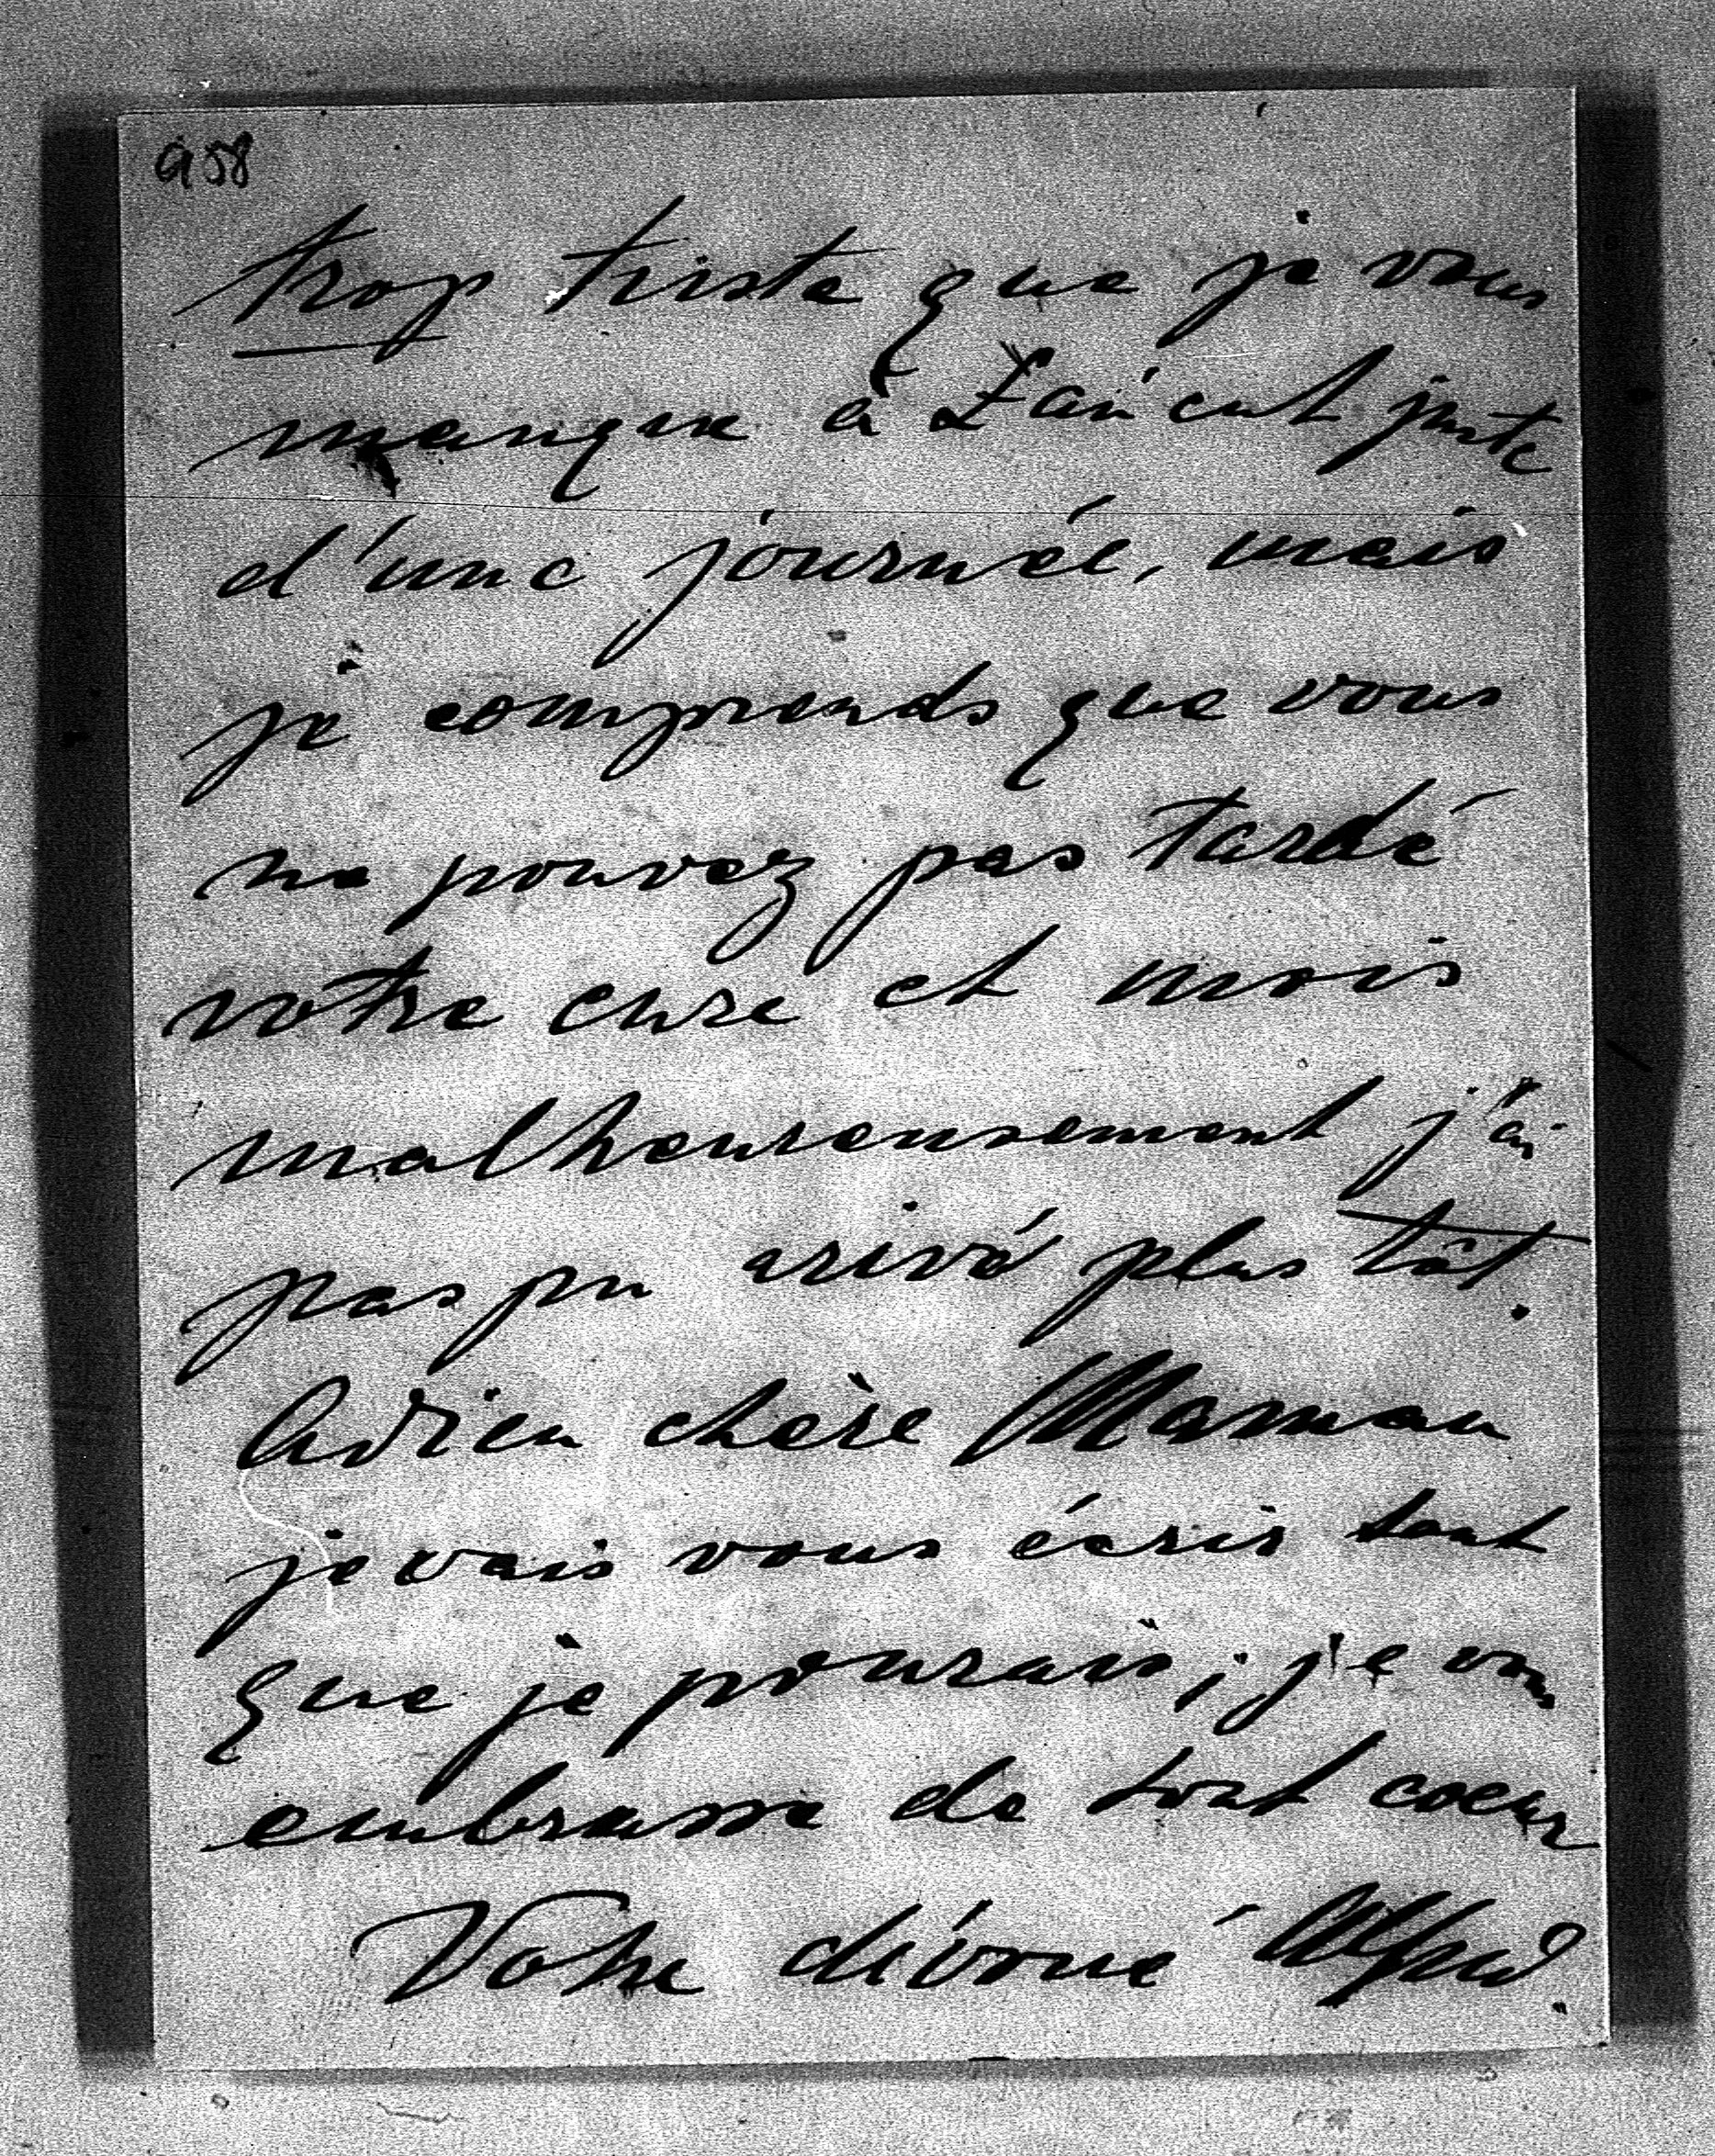 958
trop triste que je vous
manque à Łańcut juste
d'une journée, mais
je comprends que vous
ne pouvez pas tardé
votre cure et mois
malheureusement j'ai
pas pu arivé plus tôt.
Adieu chère Maman
je vais vous écris tout
que je pourais, je vous
embrasse de tout coeur
Votre dévoué Alfred